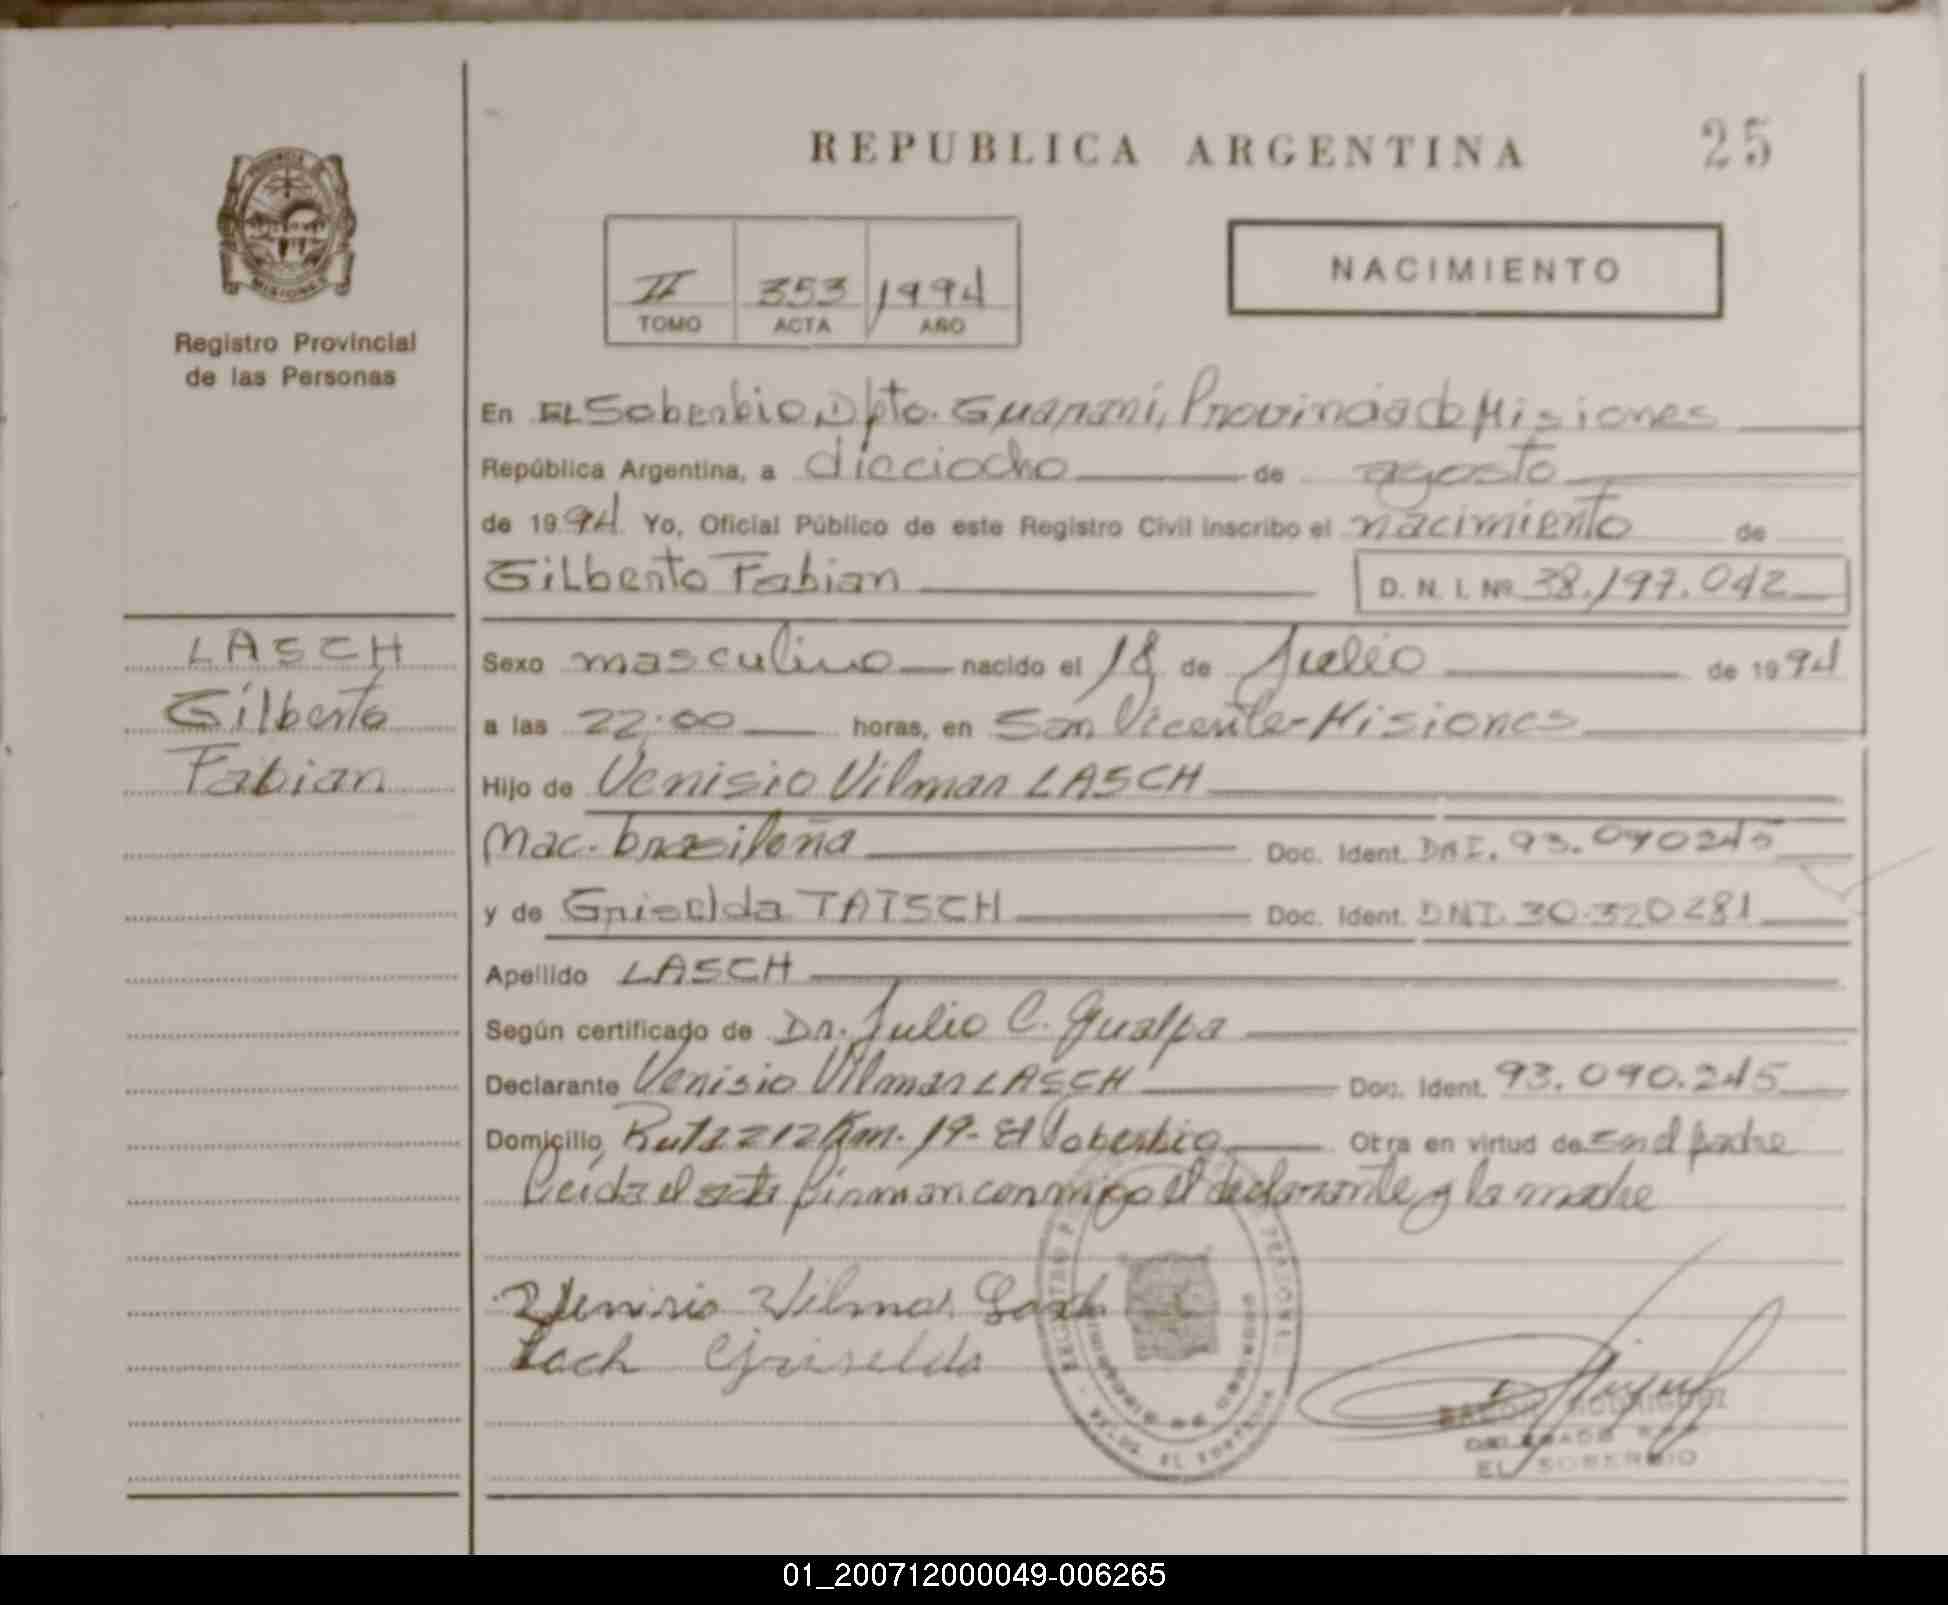 REPUBLICA ARGENTINA
25
PROVINCIA
MISIONES
Registro Provincial
de las Personas
II 353 1994
TOMO ACTA AÑO
NACIMIENTO
En EL Soberbio, Dpto. Guarani, Provincia de Misiones
República Argentina, a dieciocho de agosto
de 1994 Yo, Oficial Público de este Registro Civil inscribo el nacimiento de
Gilberto Fabian D. N. I. Nº 38.197.042
LASCH
Gilberto
Fabian
Sexo masculino nacido el 18 de Julio de 1994
a las 22:00 horas, en San Vicente-Misiones
Hijo de Venisio Vilmar LASCH
Nac. brasileña Doc. Ident. DNI. 93.090245
y de Griselda TATSCH Doc. Ident. DNI. 30.320281
Apellido LASCH
Según certificado de Dr. Julio C. Gualpa
Declarante Venisio Vilmar LASCH Doc. Ident. 93.090.245
Domicilio, Ruta 212 Km. 19- El Soberbio Otra en virtud de ser el padre
Leida el acta firman conmigo el declarante y la madre
Venisio Vilmar Lasch
Lach Griselda
RAMON RODRIGUEZ
DELEGADO
EL SOBERBIO
01_200712000049-006265